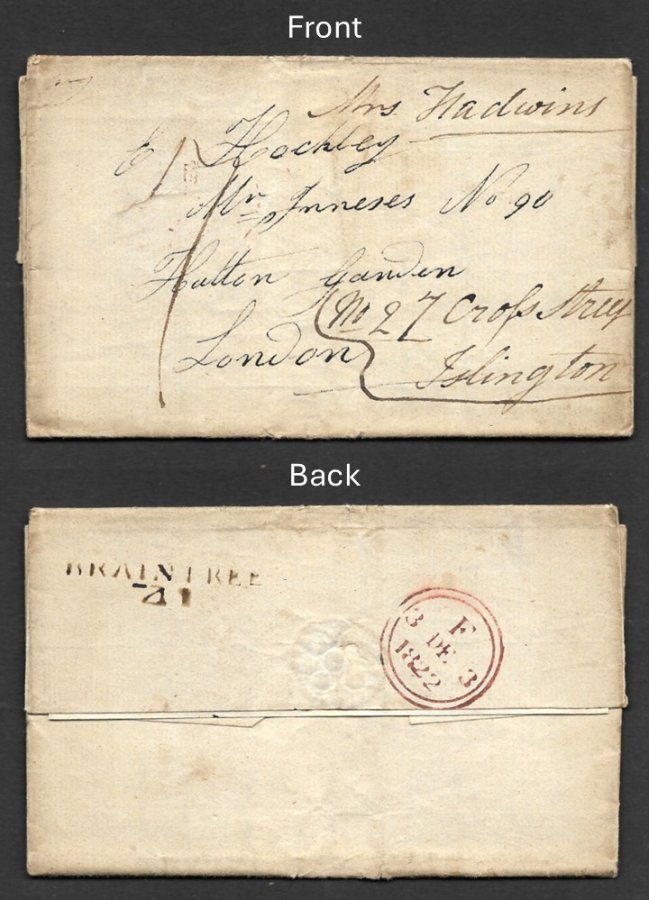 Front
Mrs Hadwins
E Hockley
Mr Inneses No 90
Hatton Garden
No 27 Cross Street
London
Islington
Back
BRAINTREE
41
F
3 DE 3
1822